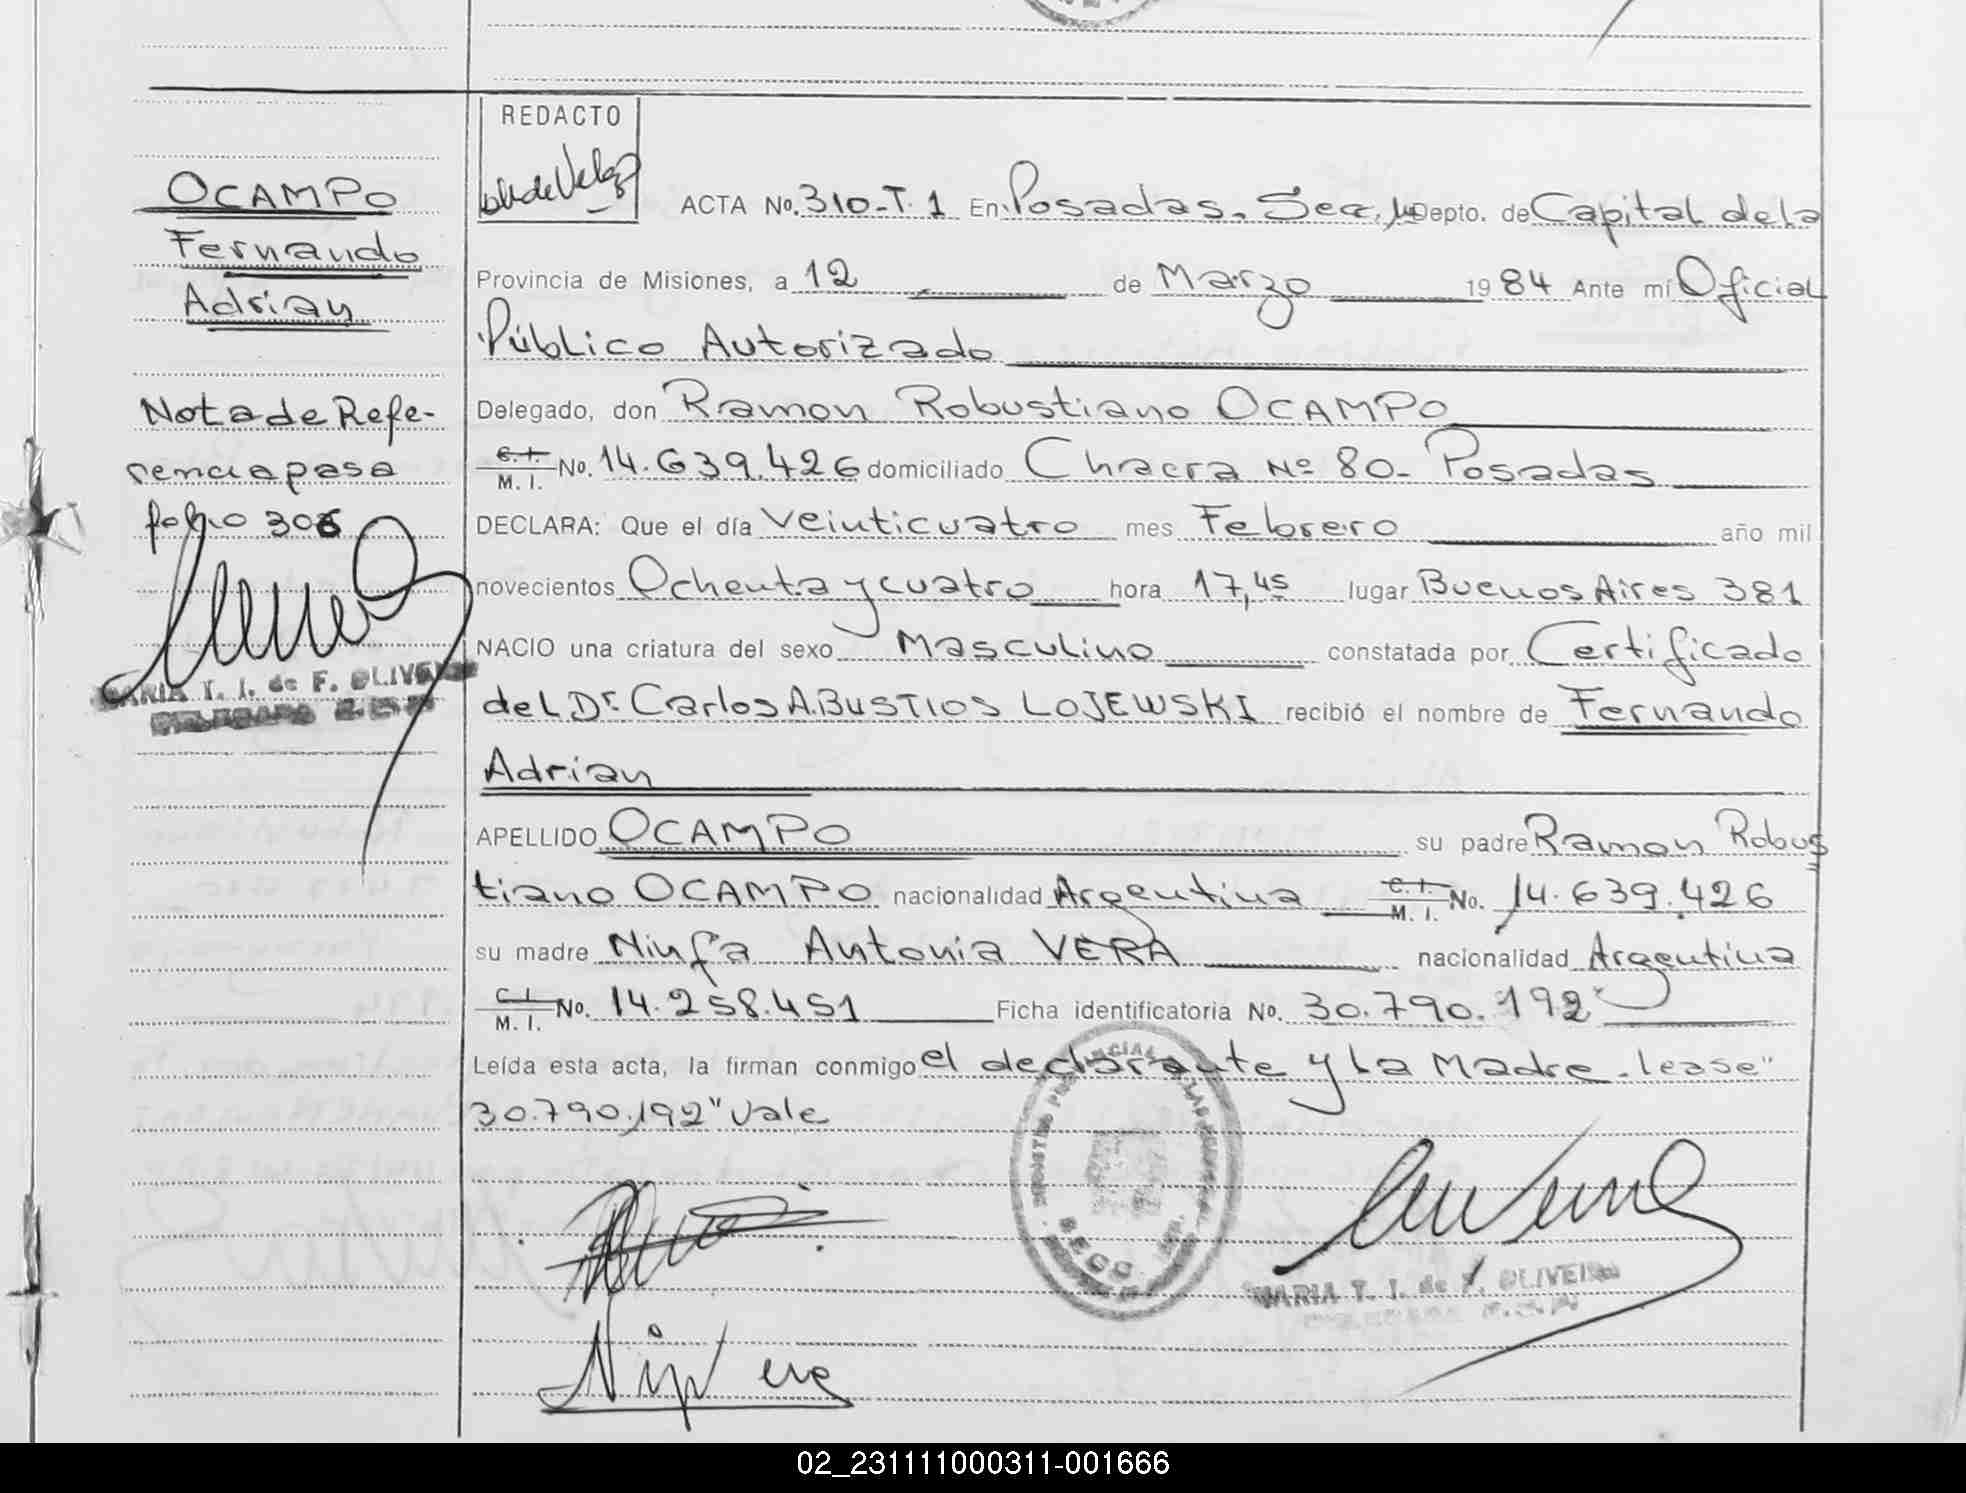 REDACTO
OCAMPO
Fernando
Adrian
Nota de Refe-
rencia pasa
folio 306
MARIA T. I. de F. OLIVEIRA
ACTA No. 310-T. 1 En Posadas. Secc. Depto. de Capital de la
Provincia de Misiones, a 12 de Marzo 1984 Ante mí Oficial
Público Autorizado
Delegado, don Ramon Robustiano OCAMPO
C. I. M. I. No. 14.639.426 domiciliado Chacra Nº 80- Posadas
DECLARA: Que el día Veinticuatro mes Febrero año mil
novecientos Ochenta y cuatro hora 17,45 lugar Buenos Aires 381
NACIO una criatura del sexo Masculino constatada por Certificado
del Dr. Carlos A. BUSTIOS LOJEWSKI recibió el nombre de Fernando
Adrian
APELLIDO OCAMPO su padre Ramon Robus
tiano OCAMPO nacionalidad Argentina C. I. M. I. No. 14.639.426
su madre Ninfa Antonia VERA nacionalidad Argentina
C. I. M. I. No. 14.258.451 Ficha identificatoria No. 30.790.192
Leída esta acta, la firman conmigo el declarante y la Madre. lease"
30.790.192" Vale
MARIA T. I. de F. OLIVEIRA
02_231111000311-001666